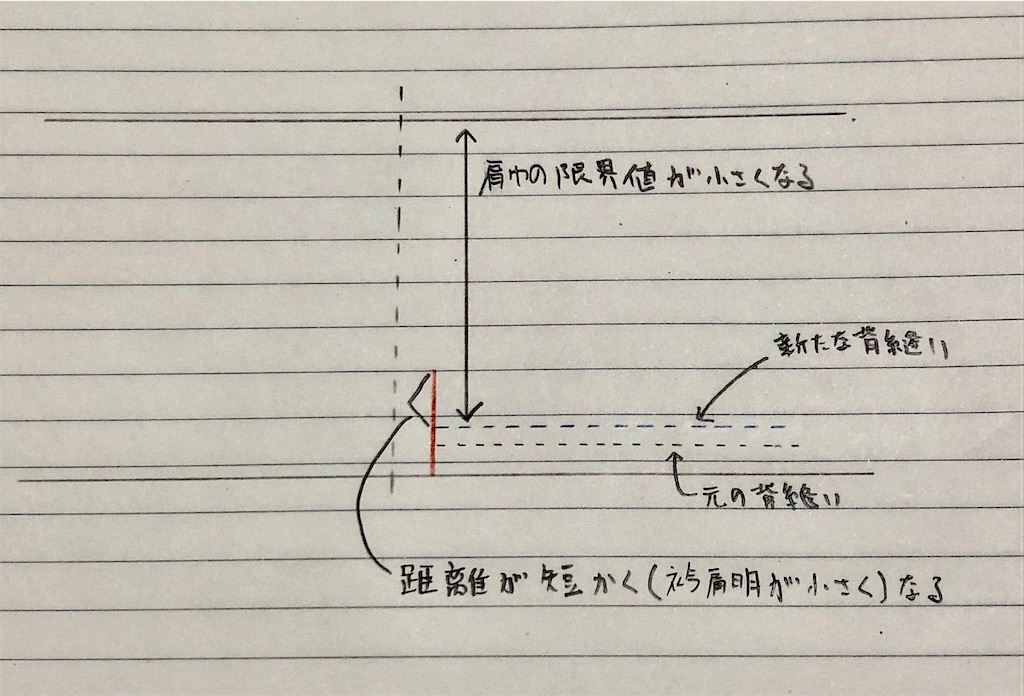 肩巾の限界値が小さくなる
新たな背縫い
元の背縫い
距離が短かく(衿肩明が小さく)なる